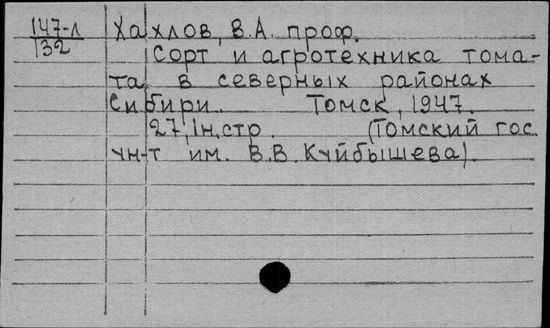 147-л
132
Хахлов, В.А. проф.
Сорт и агротехника тома-
та в северных районах
Сибири. Томск, 1947.
27, 1н.стр. (Томский гос.
ун-т им. В.В. Куйбышева).